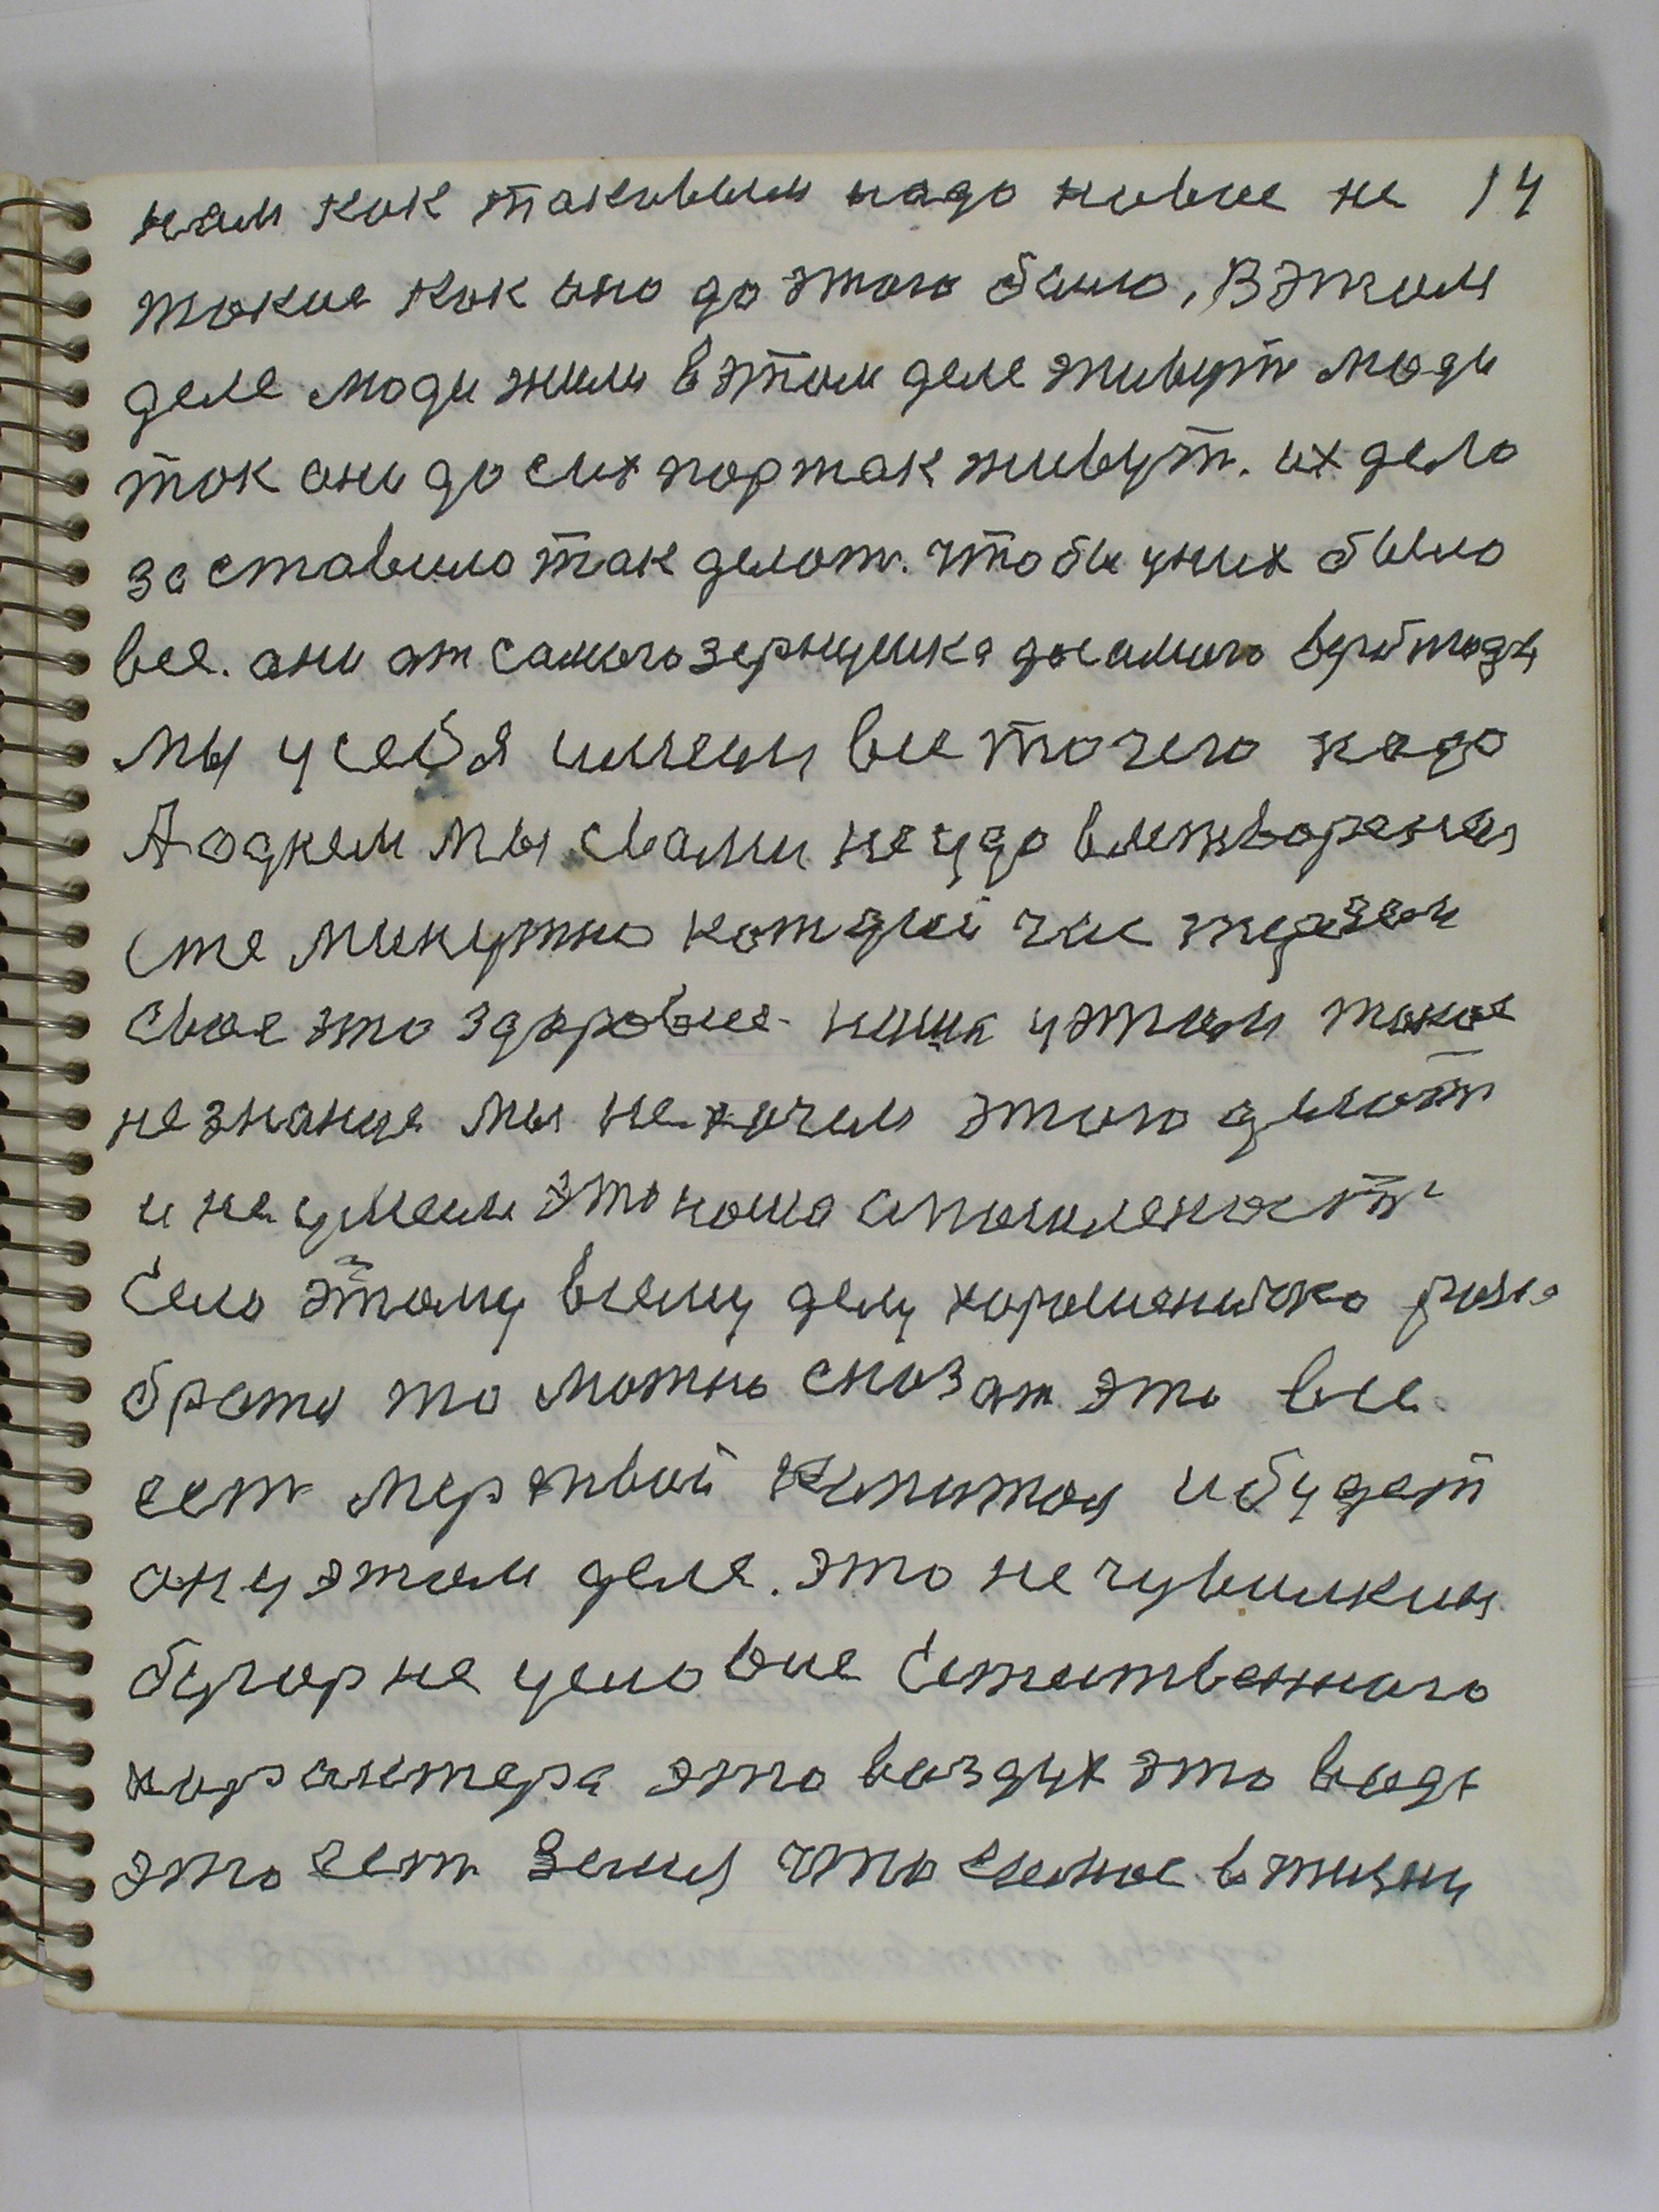 нам как таковым надо новое не 14
такое как оно до этого было, В этом
деле люди жили в этом деле живут люди
так они до сих пор так живут. их дело
заставило так делат. чтобы у них было
все. они от самого зернушка до самого
мы у себя имеем все то чего надо
А одкем мы свами неудовлетворения
минутно каждый час теряем
свое это здоровие наша у этом такое
незнание мы не хочем этого делат
и не умеем это наша
Если этому всему делу хорошенько разо
братя то можно сказат это все
ест мертвый капитал и будет
он у этом деле. это не чувилкин
бугор не условие естественного
характера это воздух это вода
это ест Земля что самое в жизни